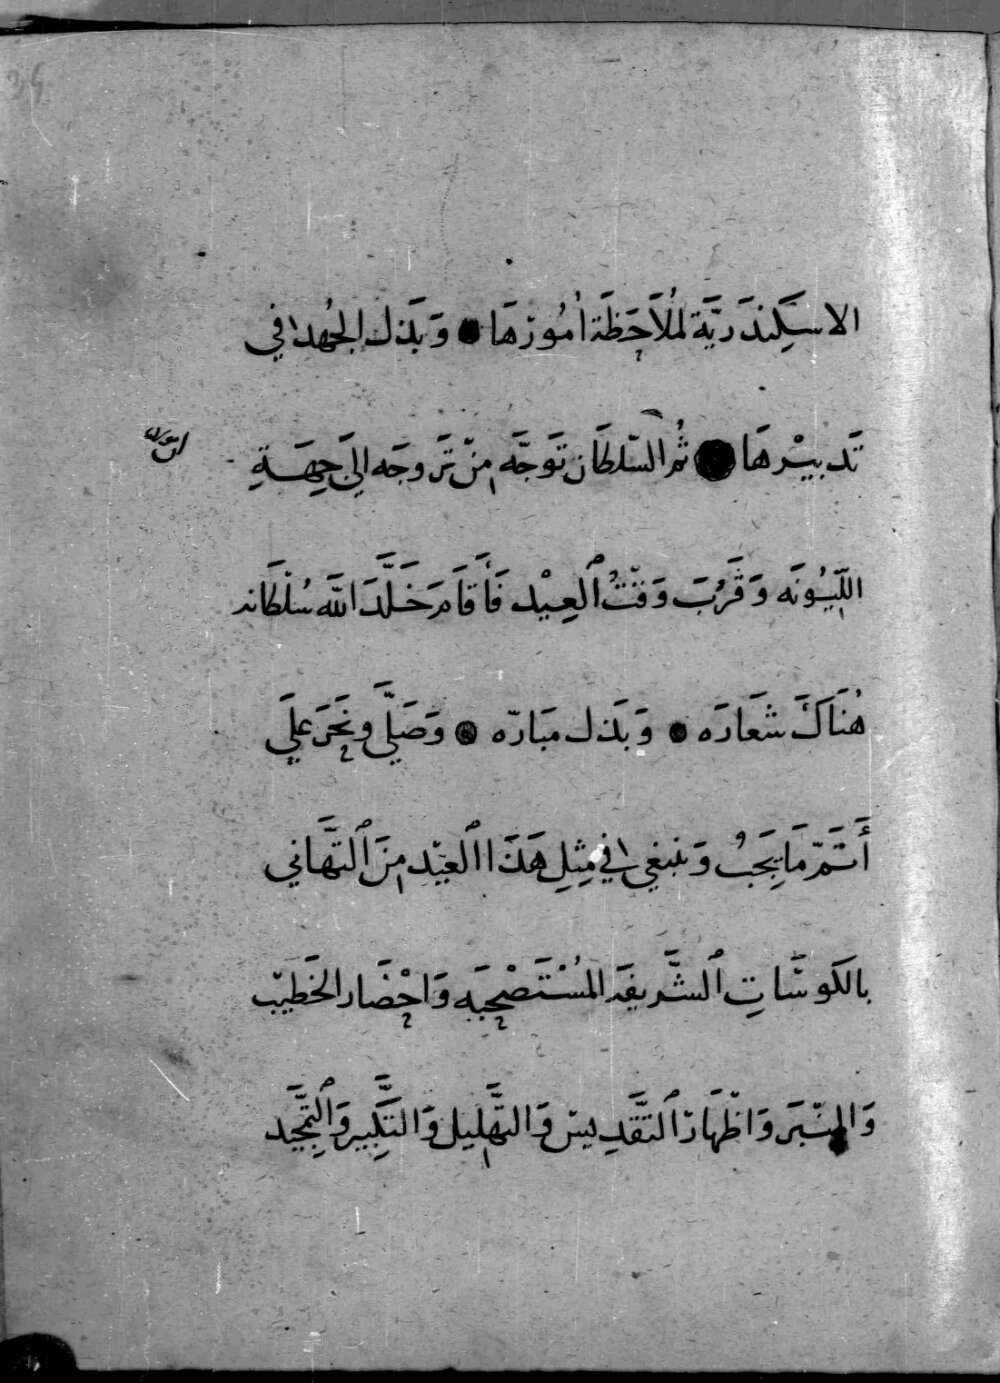 الاسكَِندَريَّة لمُلَاحَظَة اُمُورْهَا ● وَبَذلِ الجُهد في
تَدبيْرهَا ● ثُم السّلطَان تَوَجَّه مِنْ تَروجَه الىَ جِهَةِ
اللّيُونَه وَقَرُبَ وَقْتُ ٱلعِيْد فَأَقَامَ خَلَّدَ اللَّه سُلْطَانه
هُنَاكَ شعَارَه ● وَبَذل مبَارّه ● وَصَلَّى وَنَحَرَ علَى
أَتَمّ مَا يَجَبُ وَينبغي في مِثِلِ هَذَا ٱلعيْد مِنَ ٱلتَّهَاني
بالكَوسَاتِ ٱلشَّريفَه المُسْتَصْحِبَه وَاحْضَار الخَطيْب
وَالمِنْبَر وَاظْهَار ٱلتَّقَدِيسْ وَالتَّهْلِيل وَالتَّكِبير وَٱلتَّمِجِيد